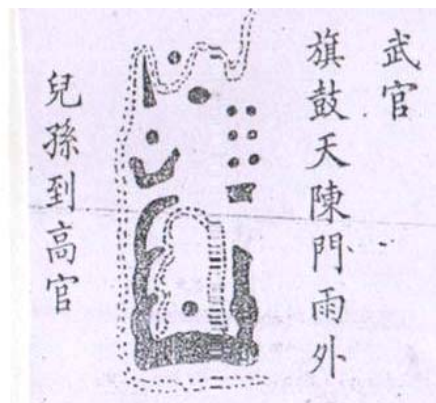 武官
旗鼓天陳門雨外
兒孫到高官